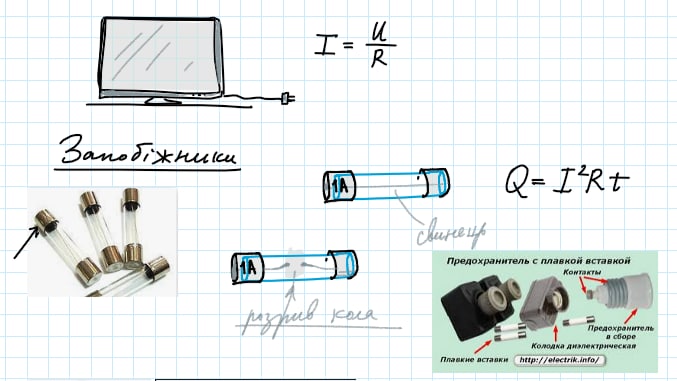 I = U/R
Запобіжники
1А
свинець
Q = I²Rt
1А
розрив кола
Предохранитель с плавкой вставкой
Контакты
Предохранитель
в сборе
Колодка диэлектрическая
Плавкие вставки
http://electrik.info/